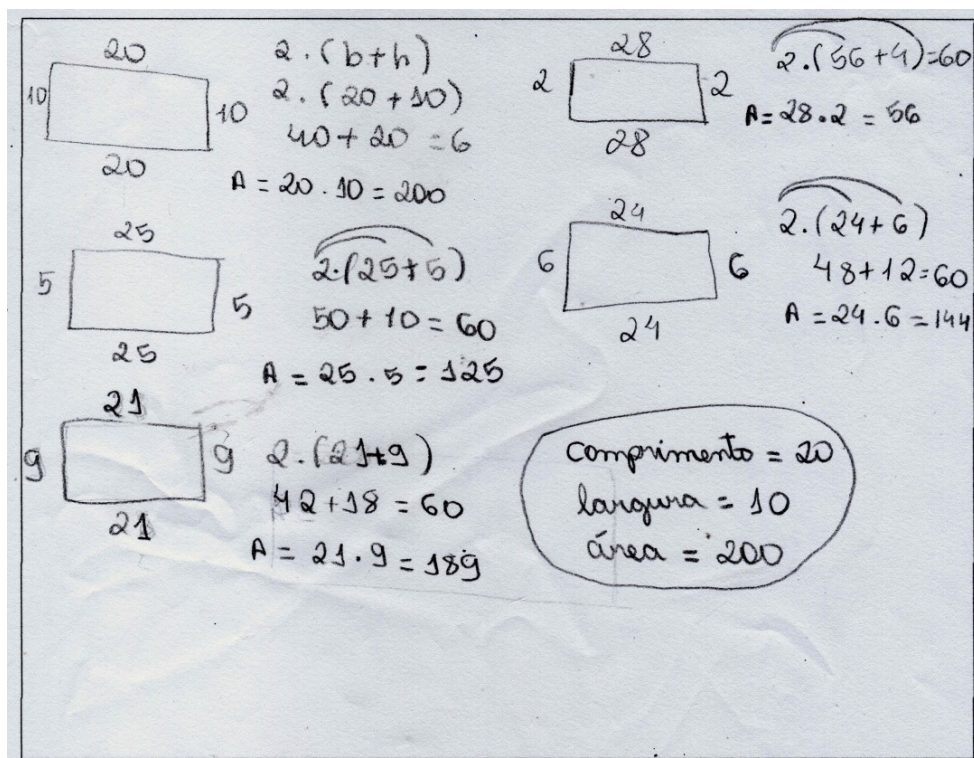 20
10
10
20
2.(b+h)
2.(20+10)
40+20=6
A=20.10=200
28
2
2
28
2.(56+4)=60
A=28.2=56
25
5
5
25
2.(25+5)
50+10=60
A=25.5=125
24
6
6
24
2.(24+6)
48+12=60
A=24.6=144
21
9
9
21
2.(21+9)
42+18=60
A=21.9=189
comprimento=20
largura=10
área=200